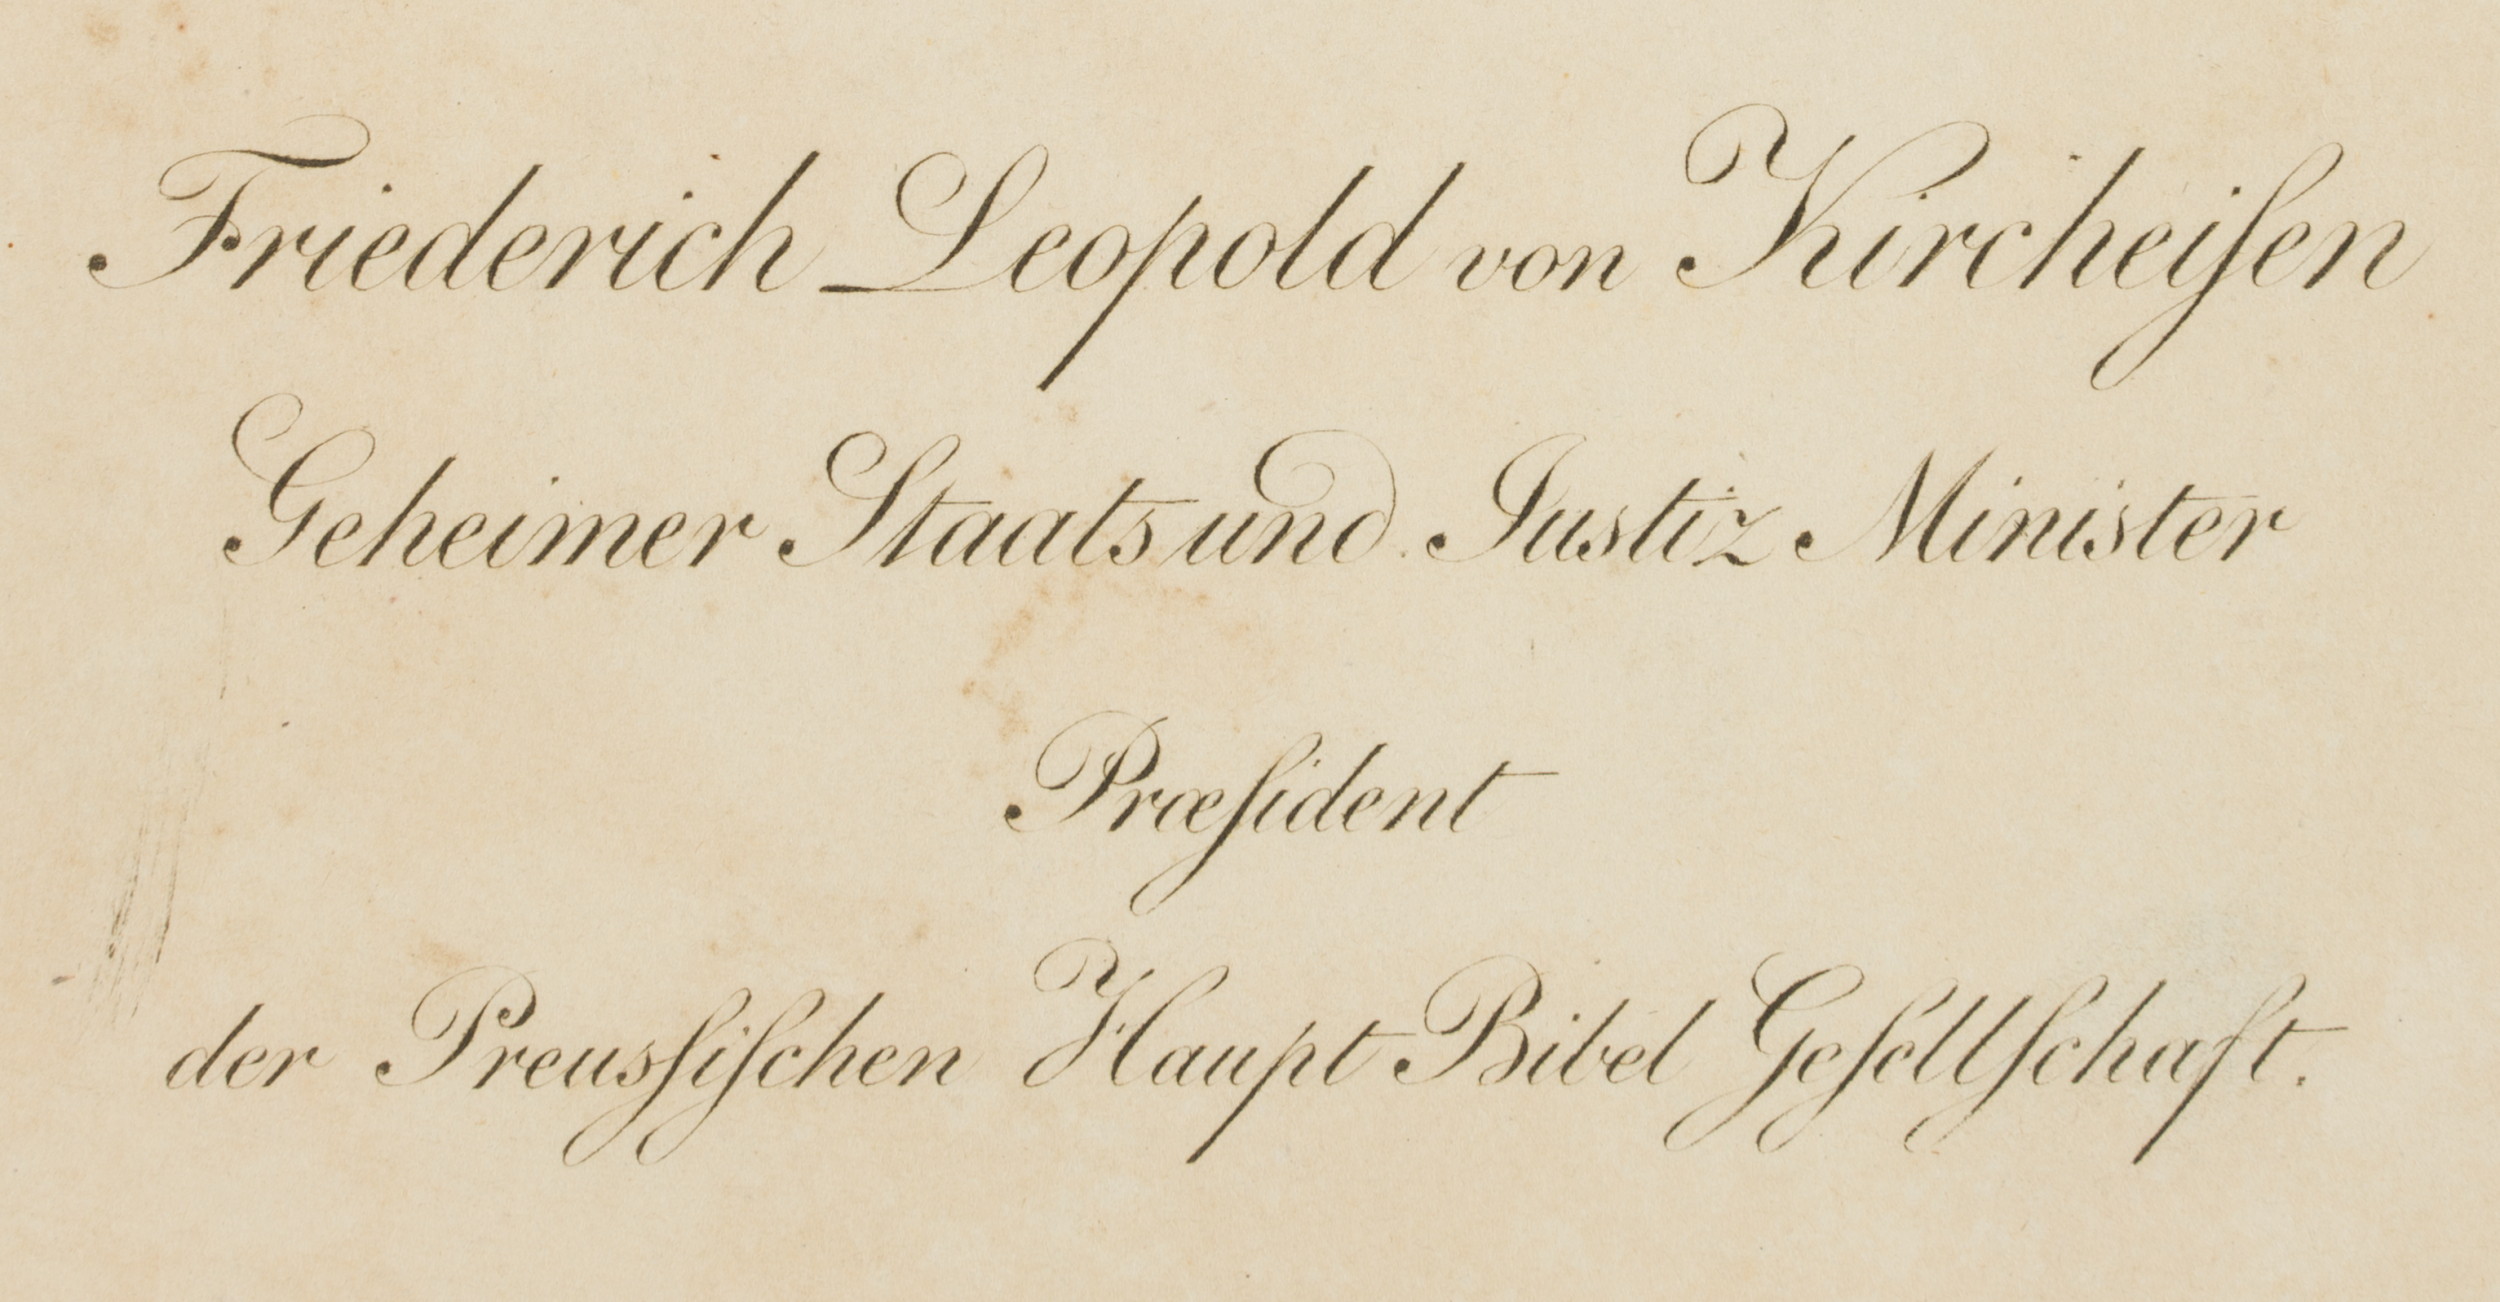 Friederich Leopold von Kircheiſen
Geheimer Staats und Justiz Minister
Præſident
der Preusſiſchen Haupt Bibel Geſellſchaft.